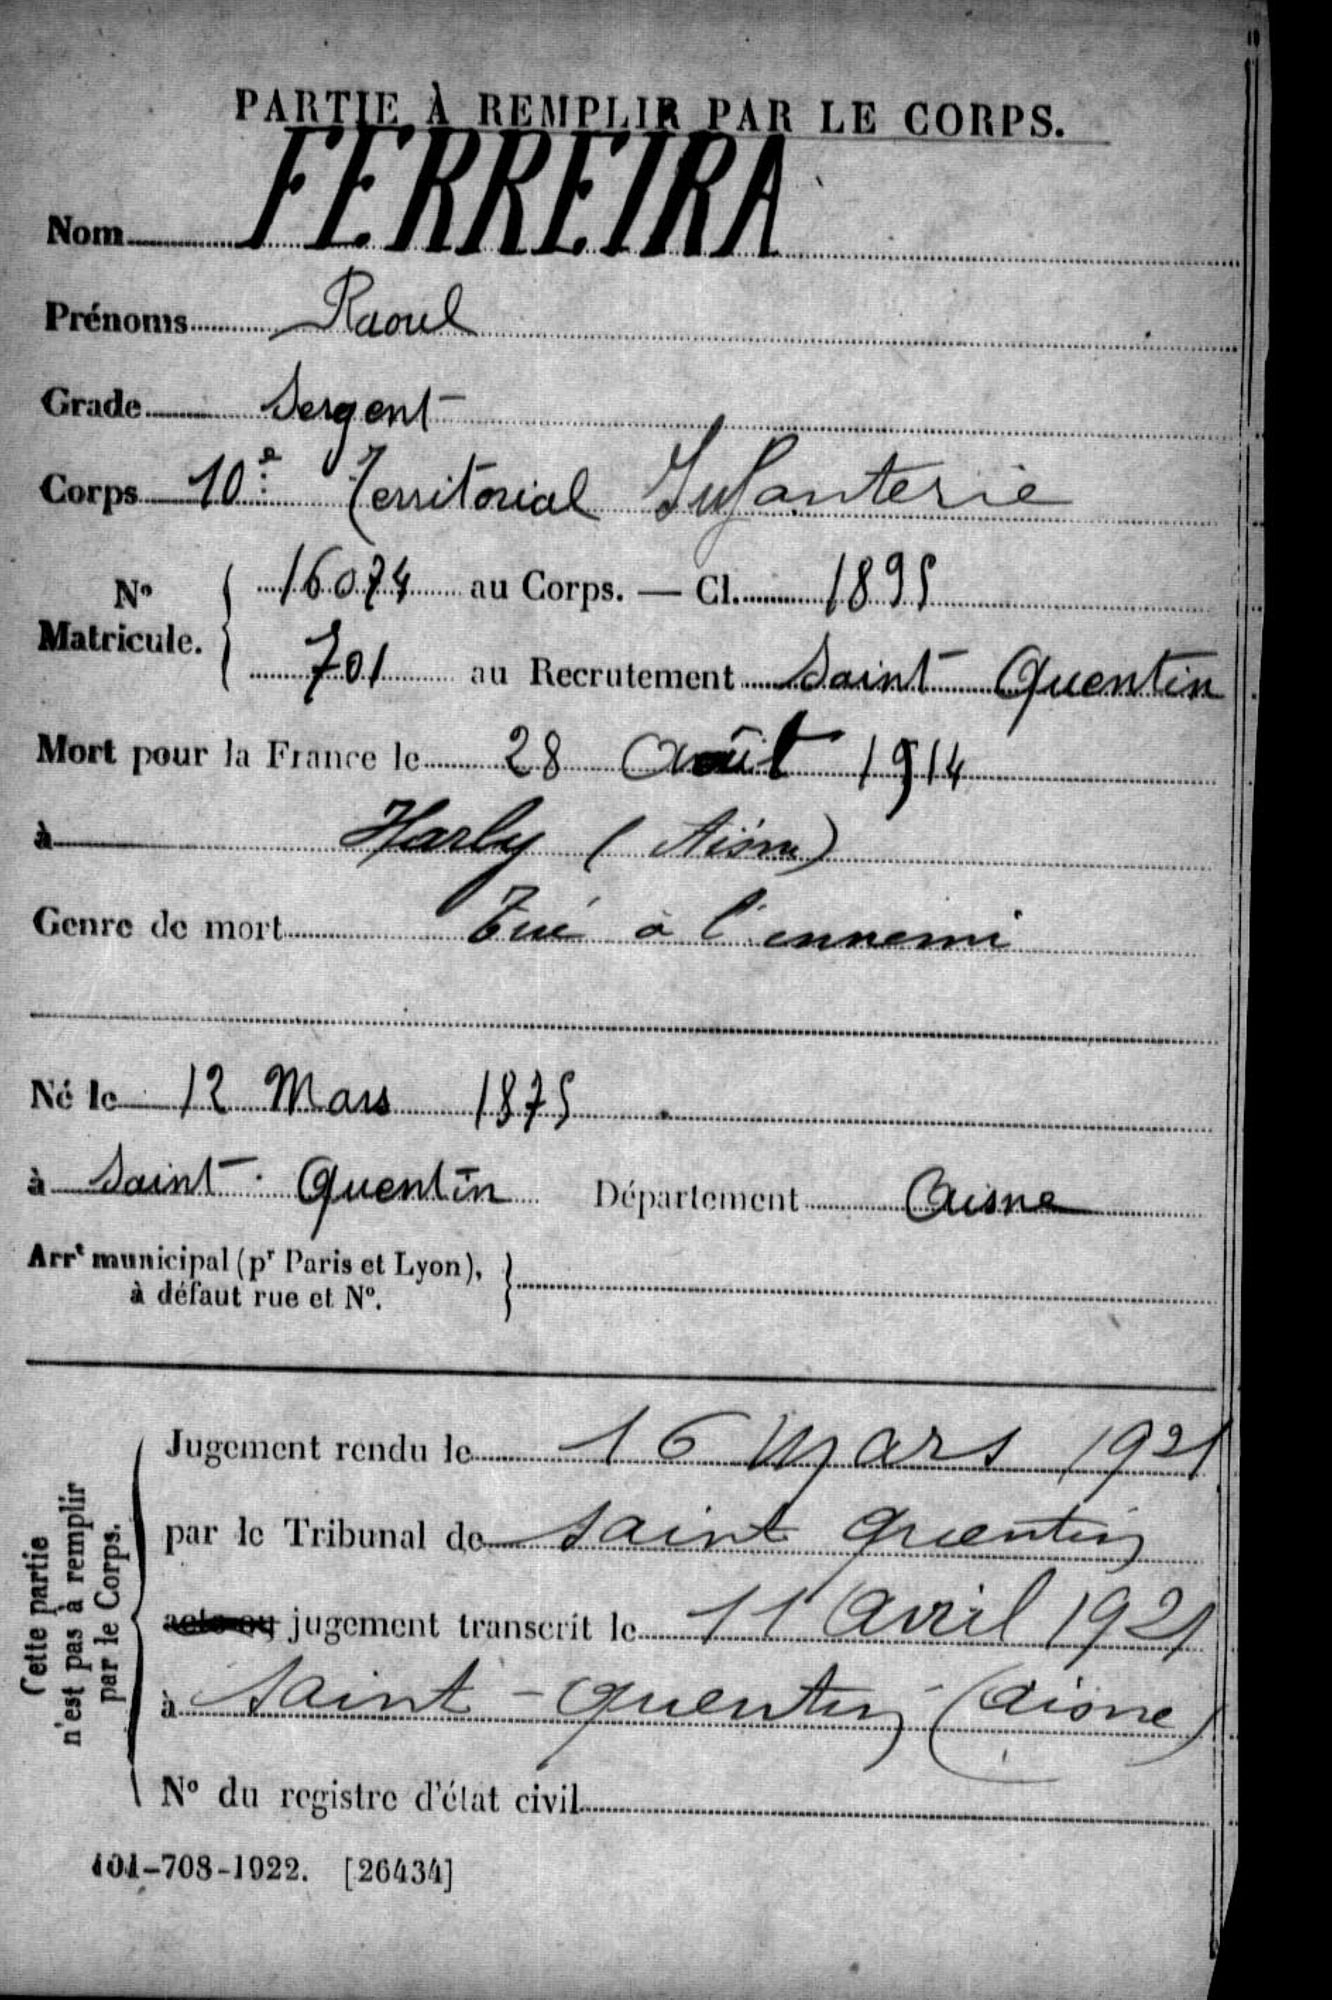 PARTIE À REMPLIR PAR LE CORPS.
Nom FERREIRA
Prénoms Raoul
Grade Sergent
Corps 10e Territorial Infanterie
No Matricule. { 16074 au Corps. — Cl. 1895
701 au Recrutement Saint Quentin
Mort pour la France le 28 Août 1914
à Harly (Aisne)
Genre de mort Tué à l'ennemi
Né le 12 Mars 1875
à Saint-Quentin Département Aisne
Arrt municipal (pr Paris et Lyon), }
à défaut rue et No.
Cette partie
n'est pas à remplir
par le Corps.
Jugement rendu le 16 Mars 1921
par le Tribunal de Saint Quentin
acte ou jugement transcrit le 11 Avril 1921
à Saint-Quentin (Aisne)
No du registre d'état civil
101-708-1922. [26434]